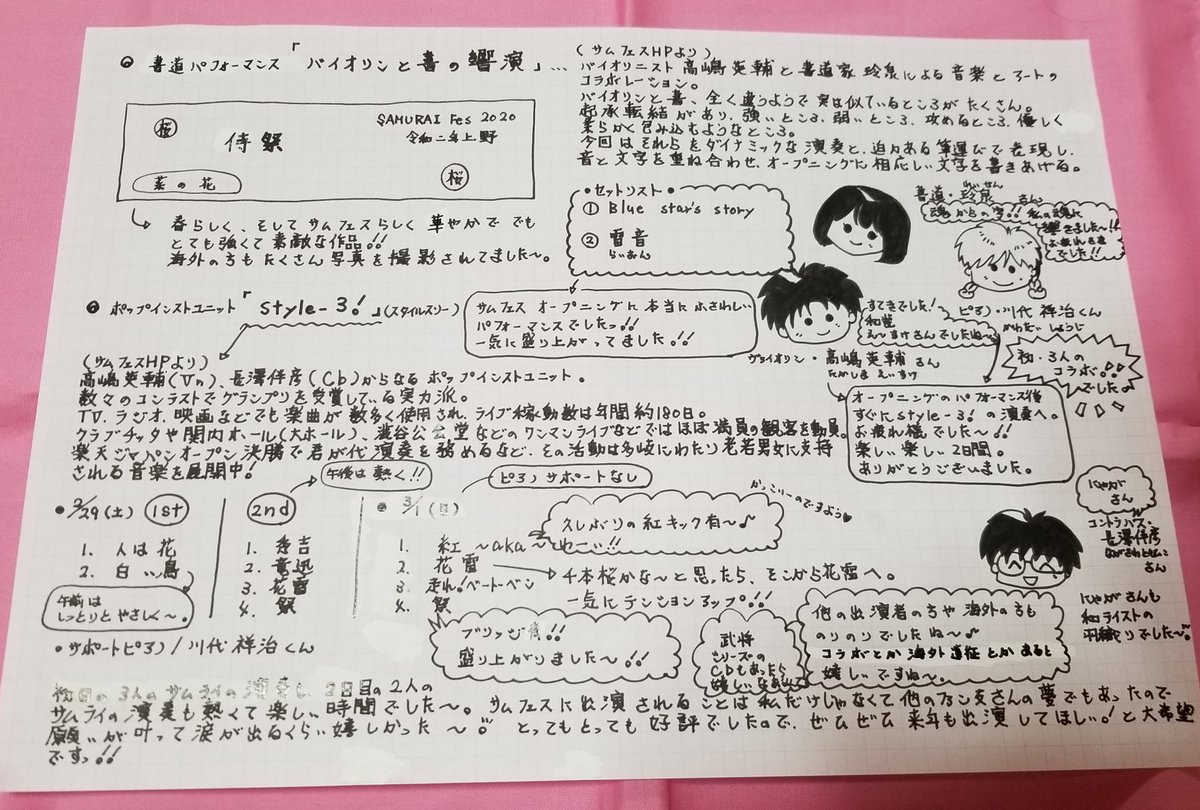 書道パフォーマンス「バイオリンと書の響演」…
(サムフェスHPより)
バイオリニスト高嶋英輔と書道家 玲泉による音楽とアートの
コラボレーション。
バイオリンと書、全く違うようで実は似ているところがたくさん。
起承転結があり、強いところ、弱いところ、攻めるところ、優しく
柔らかく包み込むようなところ。
今回はそれらをダイナミックな演奏と、迫力ある筆運びで表現し、
音と文字を重ね合わせ、オープニングに相応しい文字を書きあげる。
桜
侍祭
SAMURAI Fes 2020
令和二年上野
菜の花
桜
春らしく、そしてサムフェスらしく華やかで でも
とても強くて素敵な作品!!
海外の方もたくさん写真を撮影されてました〜。
・セットリスト・
① Blue star's story
② 雷音
らいおん
書道・玲泉さん
れいせん
魂からの字!! 私の魂に
響きました〜!!
お疲れさま
でした!!
ポップインストユニット「style-3!」(スタイルスリー)
サムフェス オープニングに本当にふさわしい
パフォーマンスでしたっ!!
一気に盛り上がってました。!!
すてきでした!
和装
えーすけさんでしたね〜
ヴァイオリン・高嶋英輔さん
たかしまえいすけ
ピアノ・川代祥治くん
かわだいしょうじ
初・3人の
コラボ!!
でした。
(サムフェスHPより)
高嶋英輔(Vn)、長澤伴彦(Cb)からなるポップインストユニット。
数々のコンテストでグランプリを受賞している実力派。
TV、ラジオ、映画などでも楽曲が数多く使用され、ライブ稼動数は年間約180日。
クラブチッタや関内ホール(大ホール)、澁谷公会堂などのワンマンライブなどではほぼ満員の観客を動員。
楽天ジャパンオープン決勝で君が代演奏を務めるなど、その活動は多岐にわたり老若男女に支持
される音楽を展開中!
オープニングのパフォーマンス後
すぐにstyle-3!の演奏へ。
お疲れ様でした〜!!
楽しい楽しい2日間。
ありがとうございました。
・2/29(土) 1st
1. 人は花
2. 白い鳥
午前は
しっとりとやさしく〜。
2nd
午後は熱く!!
1. 秀吉
2. 竜迅
3. 花雷
4. 祭
・サポートピアノ/川代祥治くん
・3/1(日)
ピアノサポートなし
1. 紅 〜aka〜
2. 花雷
3. 走れ!ベートーベン
4. 祭
かっこいーのですよう♥
久しぶりの紅キック有〜♪
わーい!!
千本桜かな〜と思ったら、そこから花雷へ。
一気にテンションアップ!!
ブリッジ有!!
盛り上がりました〜!!
武将
シリーズの
CDもあったら
嬉しいなあ
他の出演者の方や海外の方も
のりのりでしたね〜♪
コラボとか海外遠征とかあると
嬉しいですね〜。
にゃが
さん
コントラバス・
長澤伴彦
さん
にゃがさんも
和テイストの
羽織りでした〜
初日の3人のサムライの演奏も、2日目の2人の
サムライの演奏も熱くて楽しい時間でした〜。サムフェスに出演されることは私だけじゃなくて他のファンの皆さんの夢でもあったので
願いが叶って涙が出るくらい嬉しかった〜。とってもとっても好評でしたので、ぜひぜひ来年も出演してほしい。!と大希望
ですっ!!